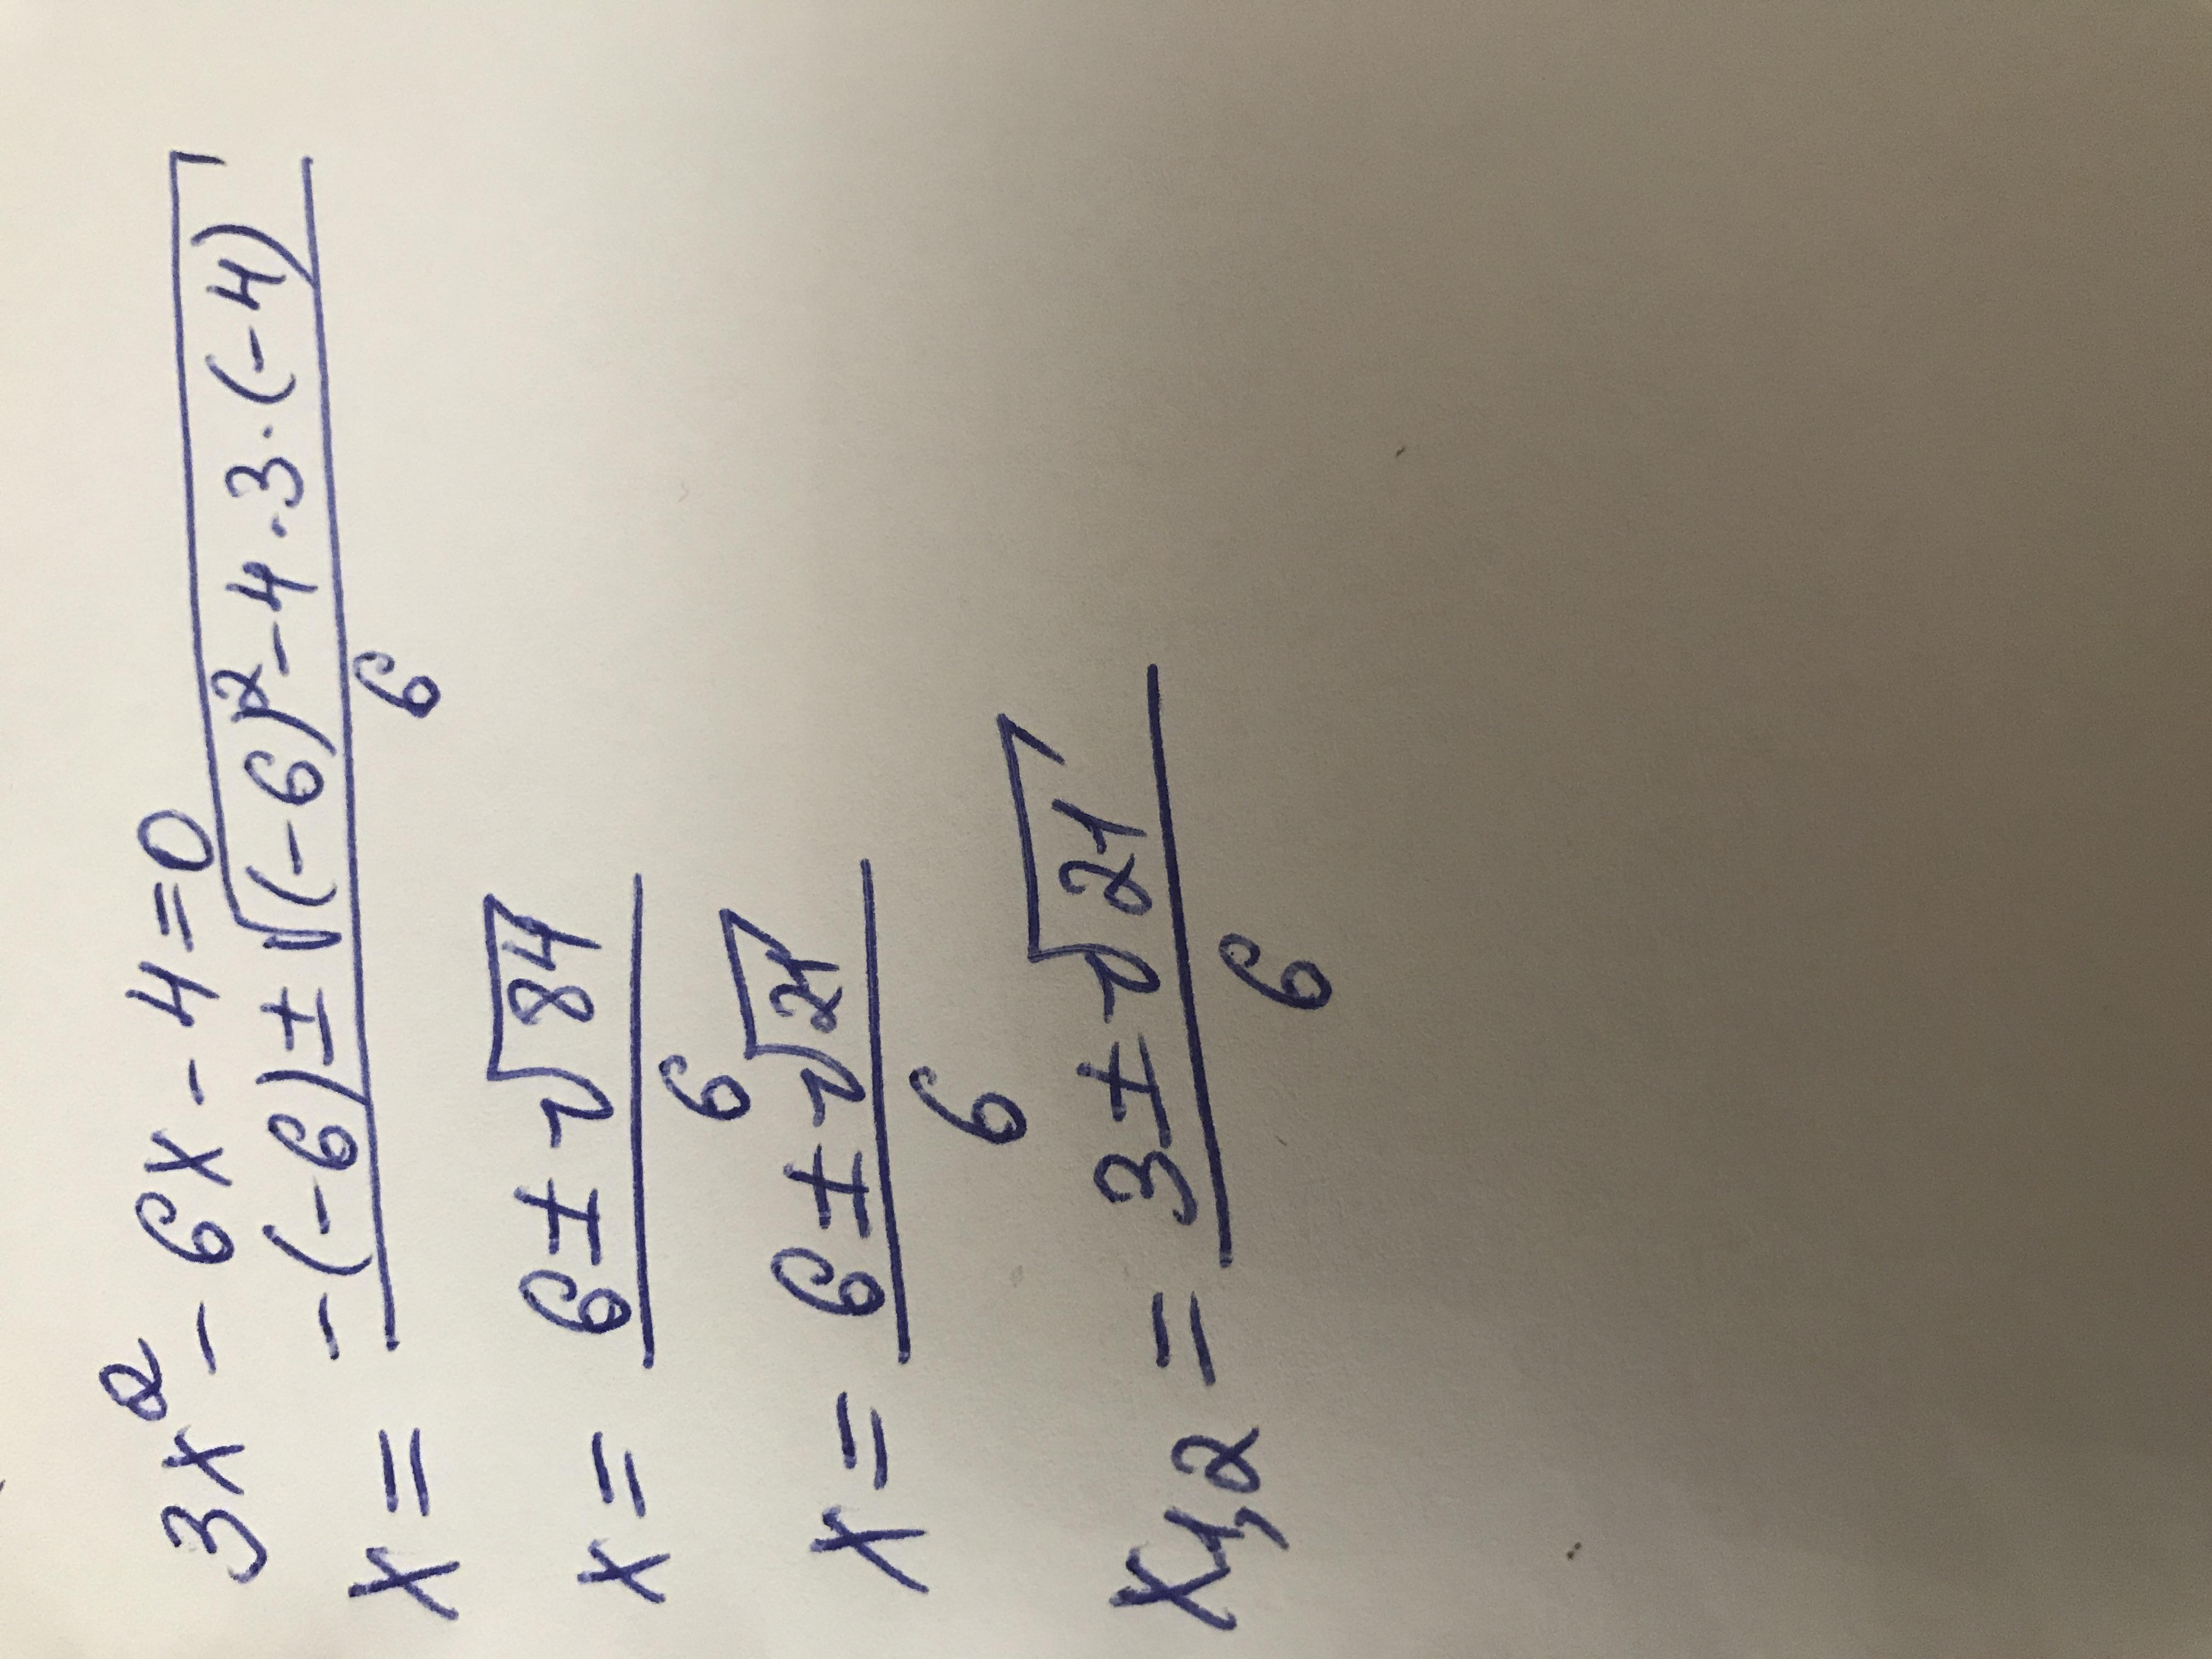 3x² - 6x - 4 = 0
x = \frac{-(-6) ± \sqrt{(-6)² - 4 · 3 · (-4)}}{6}
x = \frac{6 ± \sqrt{84}}{6}
x = \frac{6 ± \sqrt{21}}{6}
x_{1,2} = \frac{3 ± \sqrt{21}}{6}